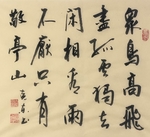 众鸟高飛
盡孤雲獨去
闲相看兩
不厭只有
敬亭山